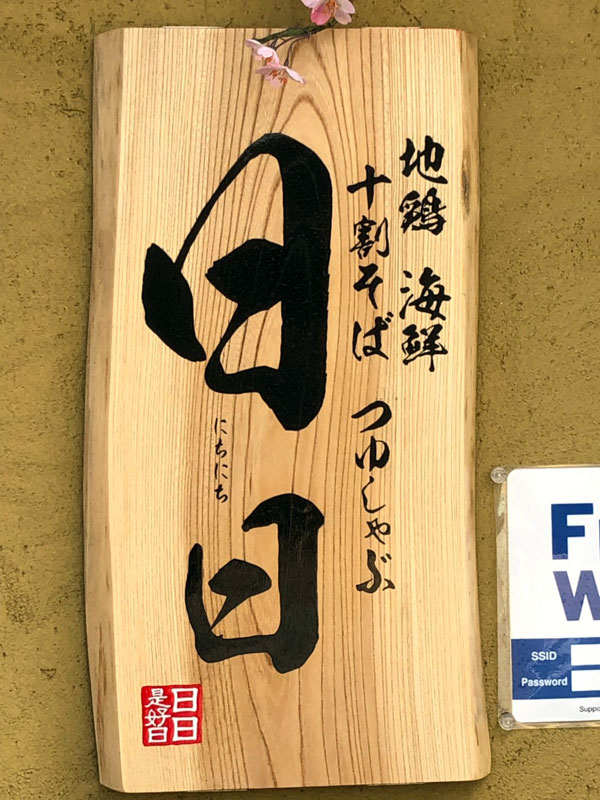 地鶏 海鮮
十割そば つゆしゃぶ
日日
にちにち
日日
是好日
SSID
Password